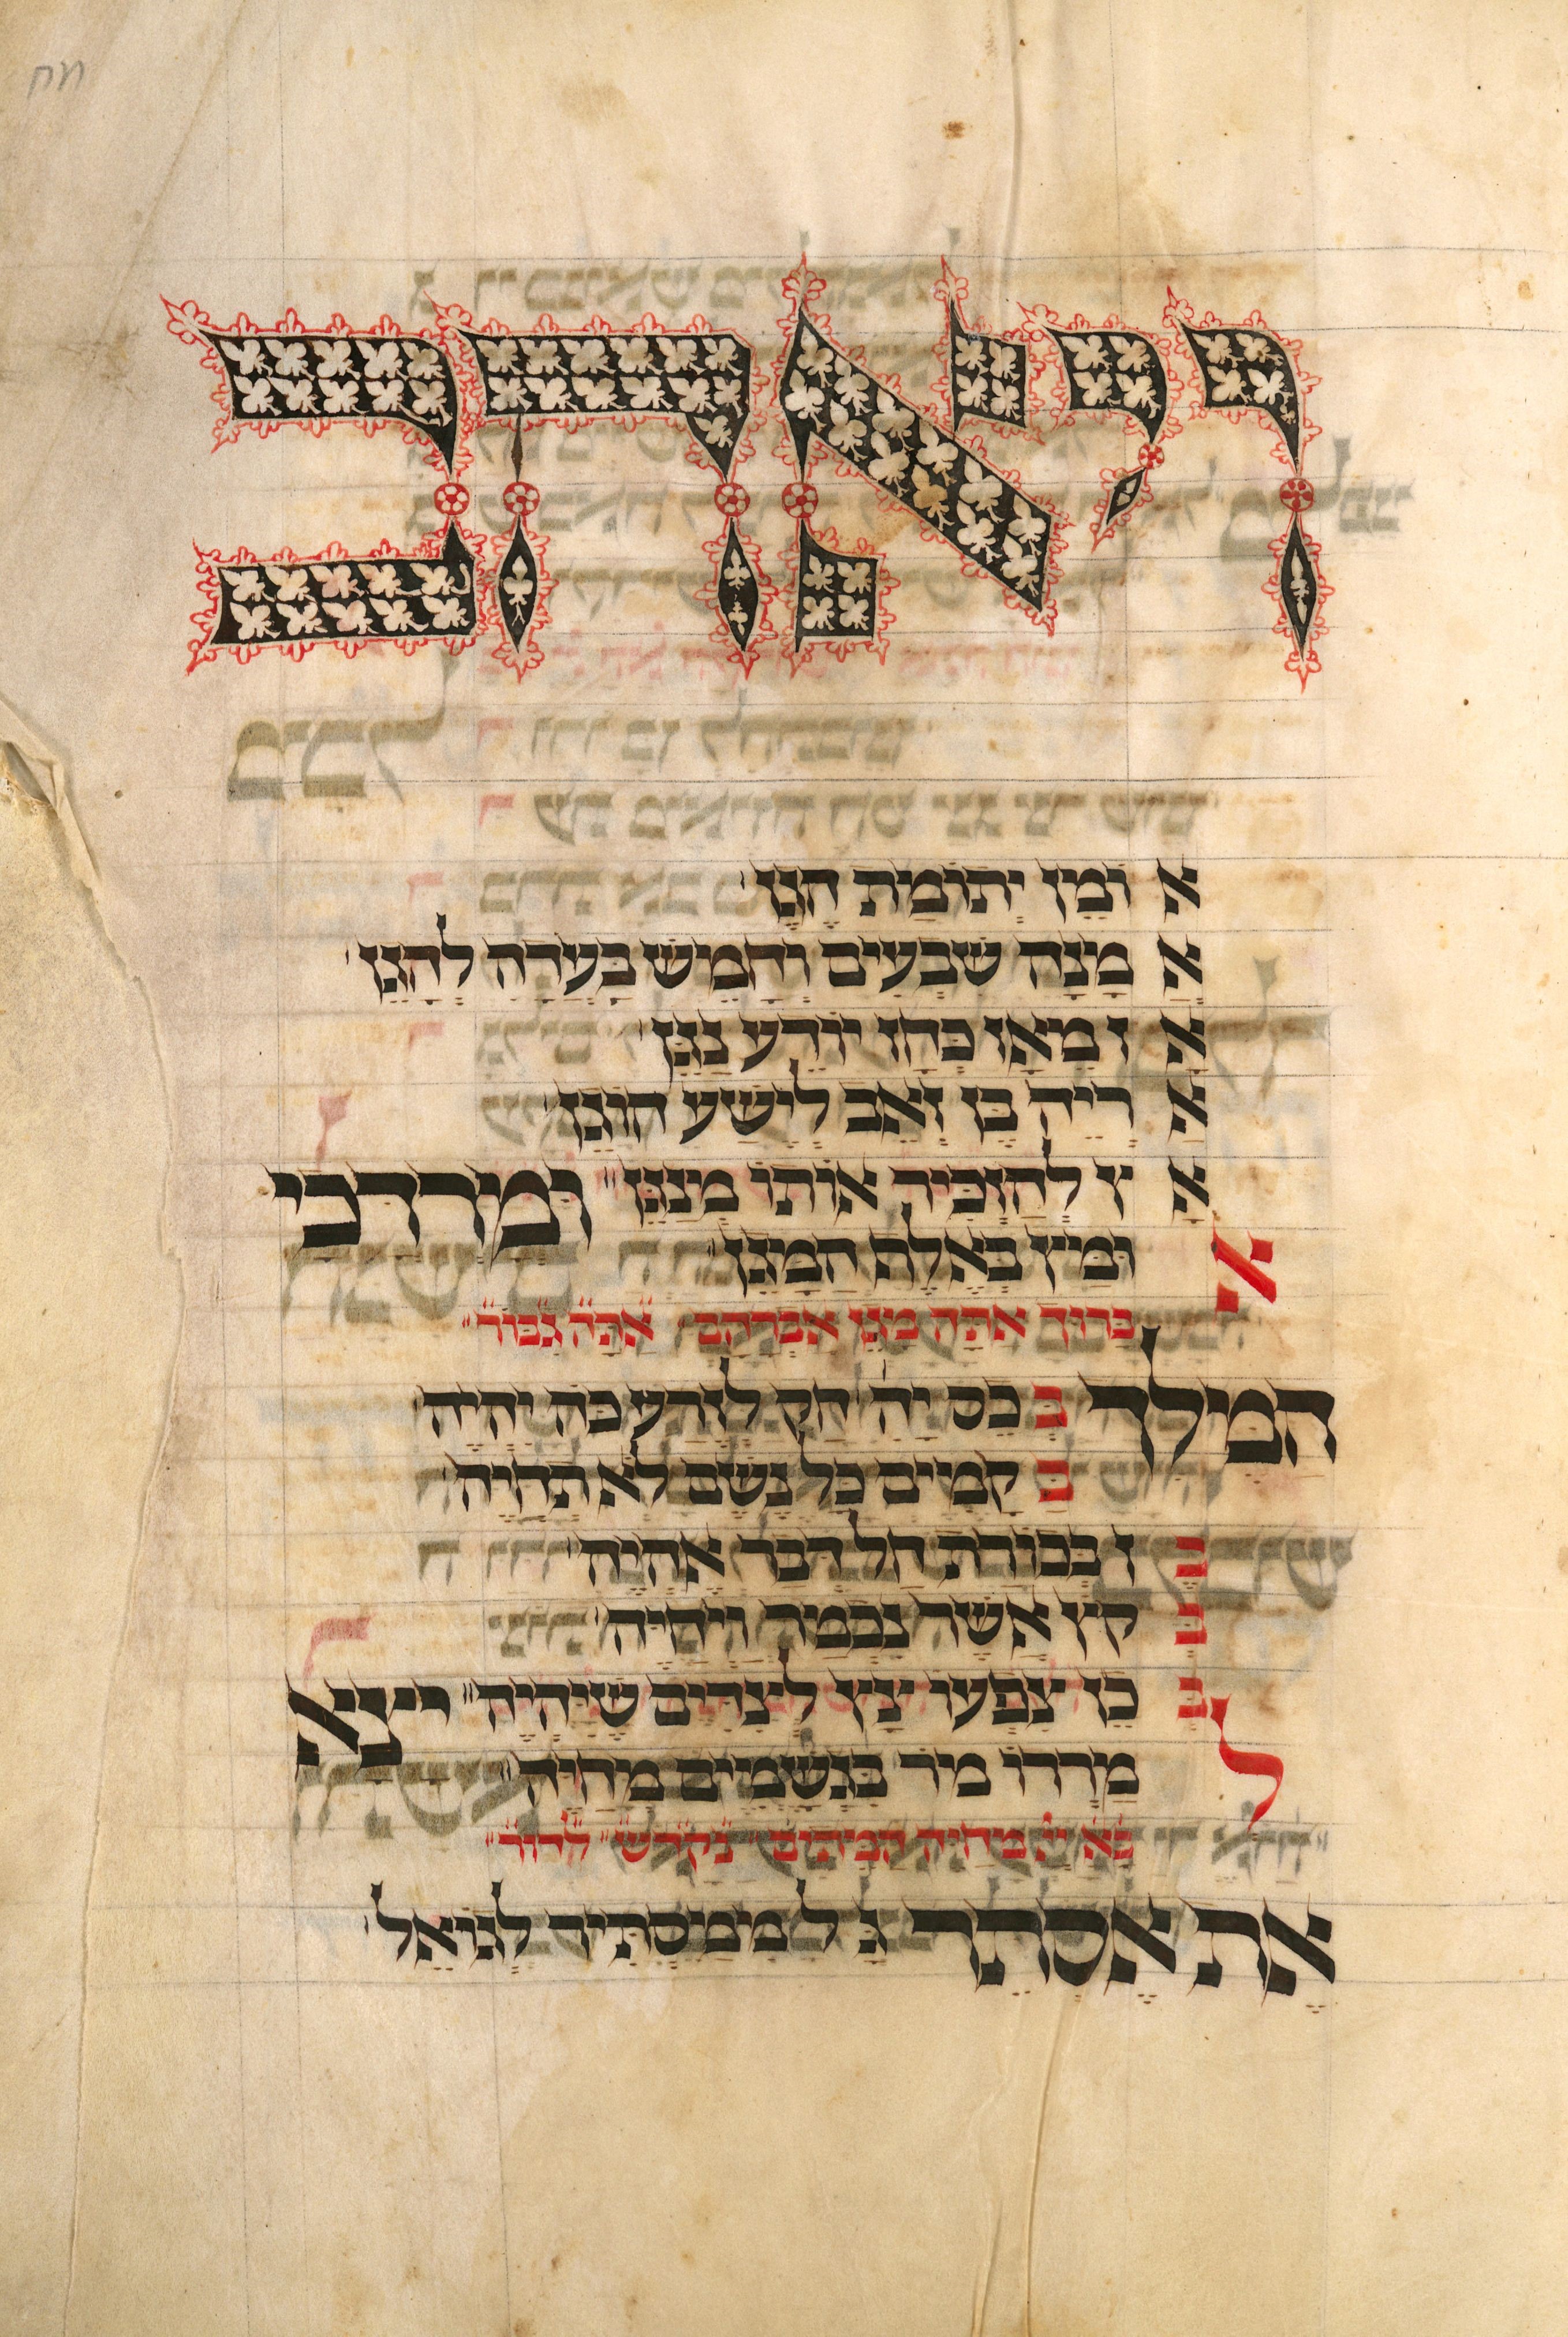 ויאהב
א ומן יתומת הגן
א מנה שבעים וחמש בעדה להגן
א ז מאז כהן יודע נגן
א ריה בן זאב לישע הוגן
א ץ להזכיר אותו מנגן ומרדכי
א ומץ באלת המגן
ברוך אתה מגן אברהם אתה גבור
המלך ב כס יה חק לזרע כה יהיה
ב קמים כל נשם לא תהיה
ב ז בכורת חל דבר אהיה
ב קץ אשר נכמר ויהיה
ב כן צפעו יצץ לצרים שיהיה ויצא
ל מרדו מר בנשמים מחיה
בא״י מחיה המתים נקדש לדור
את אסתר ג ל לממיסתיר לגואל